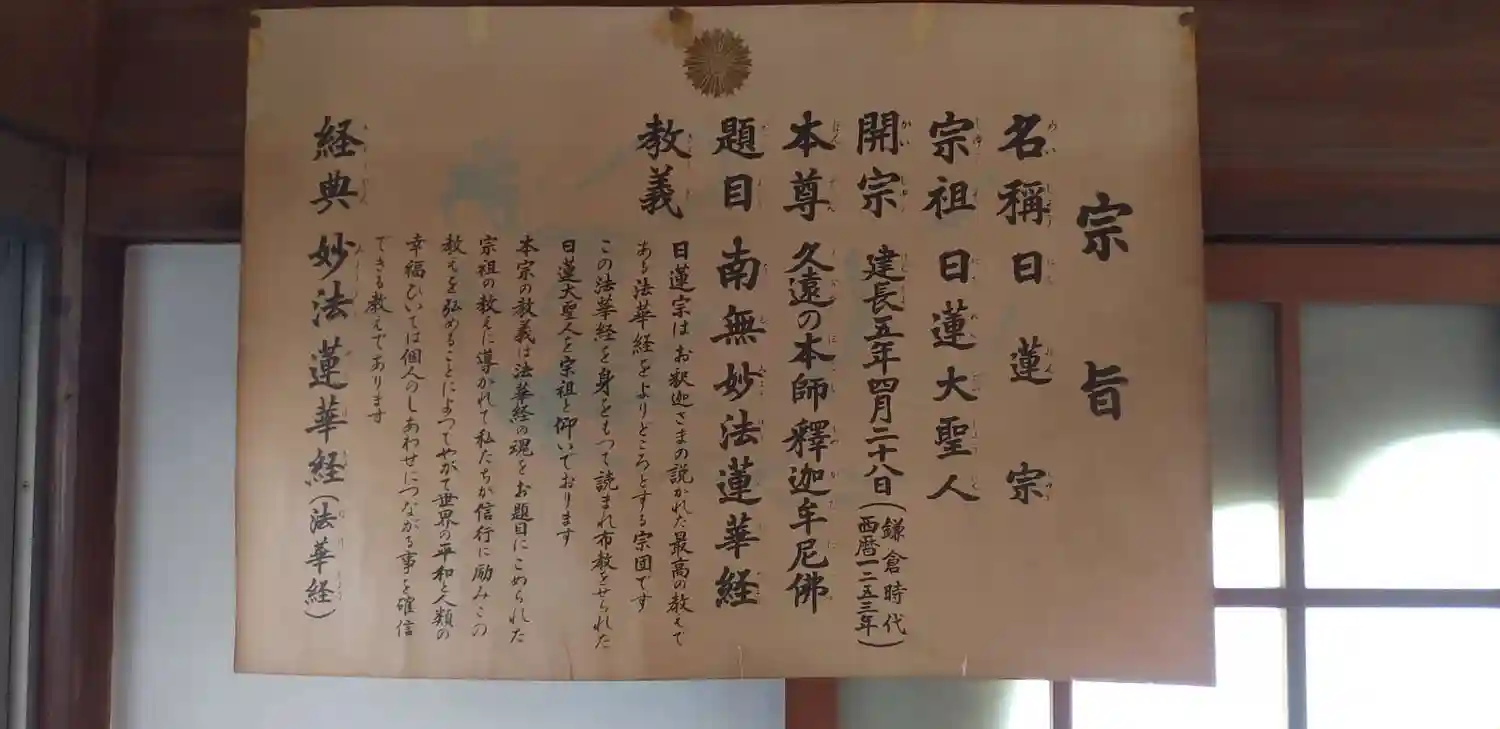 宗旨
名称 日蓮宗
宗祖 日蓮大聖人
開宗 建長五年四月二十八日(鎌倉時代 西暦一二五三年)
本尊 久遠の本師釋迦牟尼佛
題目 南無妙法蓮華経
教義
日蓮宗はお釈迦さまの説かれた最高の教えで
ある法華経をよりどころとする宗団です
この法華経を身をもつて読まれ布教をせられた
日蓮大聖人を宗祖と仰いでおります
本宗の教義は法華経の魂をお題目にこめられた
宗祖の教えに導かれて私たちが信行に励みこの
教えを弘めることによつてやがて世界の平和と人類の
幸福ひいては個人のしあわせにつながる事を確信
できる教えであります
経典 妙法蓮華経(法華経)